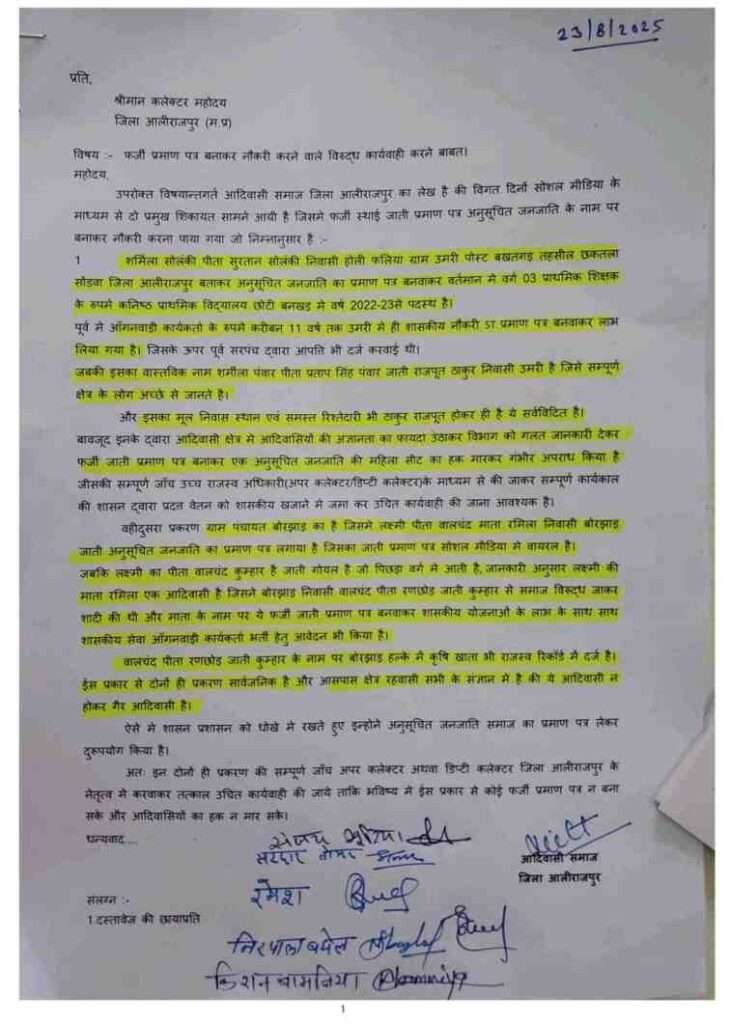 23/8/2025
प्रति,
श्रीमान कलेक्टर महोदय
जिला आलीराजपुर (म.प्र)
विषय :- फर्जी प्रमाण पत्र बनाकर नौकरी करने वाले विरुद्ध कार्यवाही करने बाबत।
महोदय,
उपरोक्त विषयान्तर्गत आदिवासी समाज जिला आलीराजपुर का लेख है की विगत दिनों सोशल मीडिया के
माध्यम से दो प्रमुख शिकायत सामने आयी है जिसमे फर्जी स्थाई जाती प्रमाण पत्र अनुसूचित जनजाति के नाम पर
बनाकर नौकरी करना पाया गया जो निम्नानुसार है :-
1 शर्मिला सोलंकी पीता सुरतान सोलंकी निवासी होली फलिया ग्राम उमरी पोस्ट बखतगड़ तहसील छकतला
सोंडवा जिला आलीराजपुर बताकर अनुसूचित जनजाति का प्रमाण पत्र बनवाकर वर्तमान मे वर्ग 03 प्राथमिक शिक्षक
के रुपमे कनिष्ठ प्राथमिक विद्यालय छोटी बनखड़ मे वर्ष 2022-23से पदस्थ है।
पूर्व मे आँगनवाडी कार्यकर्ता के रुपमे करीबन 11 वर्ष तक उमरी मे ही शासकीय नौकरी ST प्रमाण पत्र बनवाकर लाभ
लिया गया है। जिसके ऊपर पूर्व सरपंच द्वारा आपति भी दर्ज करवाई थी।
जबकी इसका वास्तविक नाम शर्मीला पंवार पीता प्रताप सिंह पंवार जाती राजपूत ठाकुर निवासी उमरी है जिसे सम्पूर्ण
क्षेत्र के लोग अच्छे से जानते है।
और इसका मूल निवास स्थान एवं समस्त रिश्तेदारी भी ठाकुर राजपूत होकर ही है ये सर्वविदित है।
बावजूद इनके द्वारा आदिवासी क्षेत्र मे आदिवासियों की अज्ञानता का फायदा उठाकर विभाग को गलत जानकारी देकर
फर्जी जाती प्रमाण पत्र बनाकर एक अनुसूचित जनजाति की महिला सीट का हक मारकर गंभीर अपराध किया है
जीसकी सम्पूर्ण जाँच उच्च राजस्व अधिकारी(अपर कलेक्टर/डिप्टी कलेक्टर)के माध्यम से की जाकर सम्पूर्ण कार्यकाल
की शासन द्वारा प्रदत्त वेतन को शासकीय खजाने मे जमा कर उचित कार्यवाही की जाना आवश्यक है।
वहीदुसरा प्रकरण ग्राम पंचायत बोरझाड़ का है जिसमे लक्ष्मी पीता वालचंद माता रमिला निवासी बोरझाड़
जाती अनुसूचित जनजाति का प्रमाण पत्र लगाया है जिसका जाती प्रमाण पत्र सोशल मीडिया मे वायरल है।
जबकि लक्ष्मी का पीता वालचंद कुम्हार है जाती गोयल है जो पिछड़ा वर्ग मे आती है, जानकारी अनुसार लक्ष्मी की
माता रमिला एक आदिवासी है जिसने बोरझाड़ निवासी वालचंद पीता रणछोड़ जाती कुम्हार से समाज विरुद्ध जाकर
शादी की थी और माता के नाम पर ये फर्जी जाती प्रमाण पत्र बनवाकर शासकीय योजनाओं के लाभ के साथ साथ
शासकीय सेवा आँगनवाडी कार्यकर्ता भर्ती हेतु आवेदन भी किया है।
वालचंद पीता रणछोड़ जाती कुम्हार के नाम पर बोरझाड़ हल्के में कृषि खाता भी राजस्व रिकॉर्ड मे दर्ज है।
ईस प्रकार से दोनों ही प्रकरण सार्वजनिक है और आसपास क्षेत्र रहवासी सभी के संज्ञान मे है की ये आदिवासी न
होकर गैर आदिवासी है।
ऐसे मे शासन प्रशासन को धोखे मे रखते हुए इन्होने अनुसूचित जनजाति समाज का प्रमाण पत्र लेकर
दुरूपयोग किया है।
अतः इन दोनों ही प्रकरण की सम्पूर्ण जाँच अपर कलेक्टर अथवा डिप्टी कलेक्टर जिला आलीराजपुर के
नेतृत्व मे करवाकर तत्काल उचित कार्यवाही की जाये ताकि भविष्य मे ईस प्रकार से कोई फर्जी प्रमाण पत्र न बना
सके और आदिवासियों का हक न मार सके।
धन्यवाद....
आदिवासी समाज
जिला आलीराजपुर
रमेश
संलग्न :-
1.दस्तावेज की छायाप्रति
1